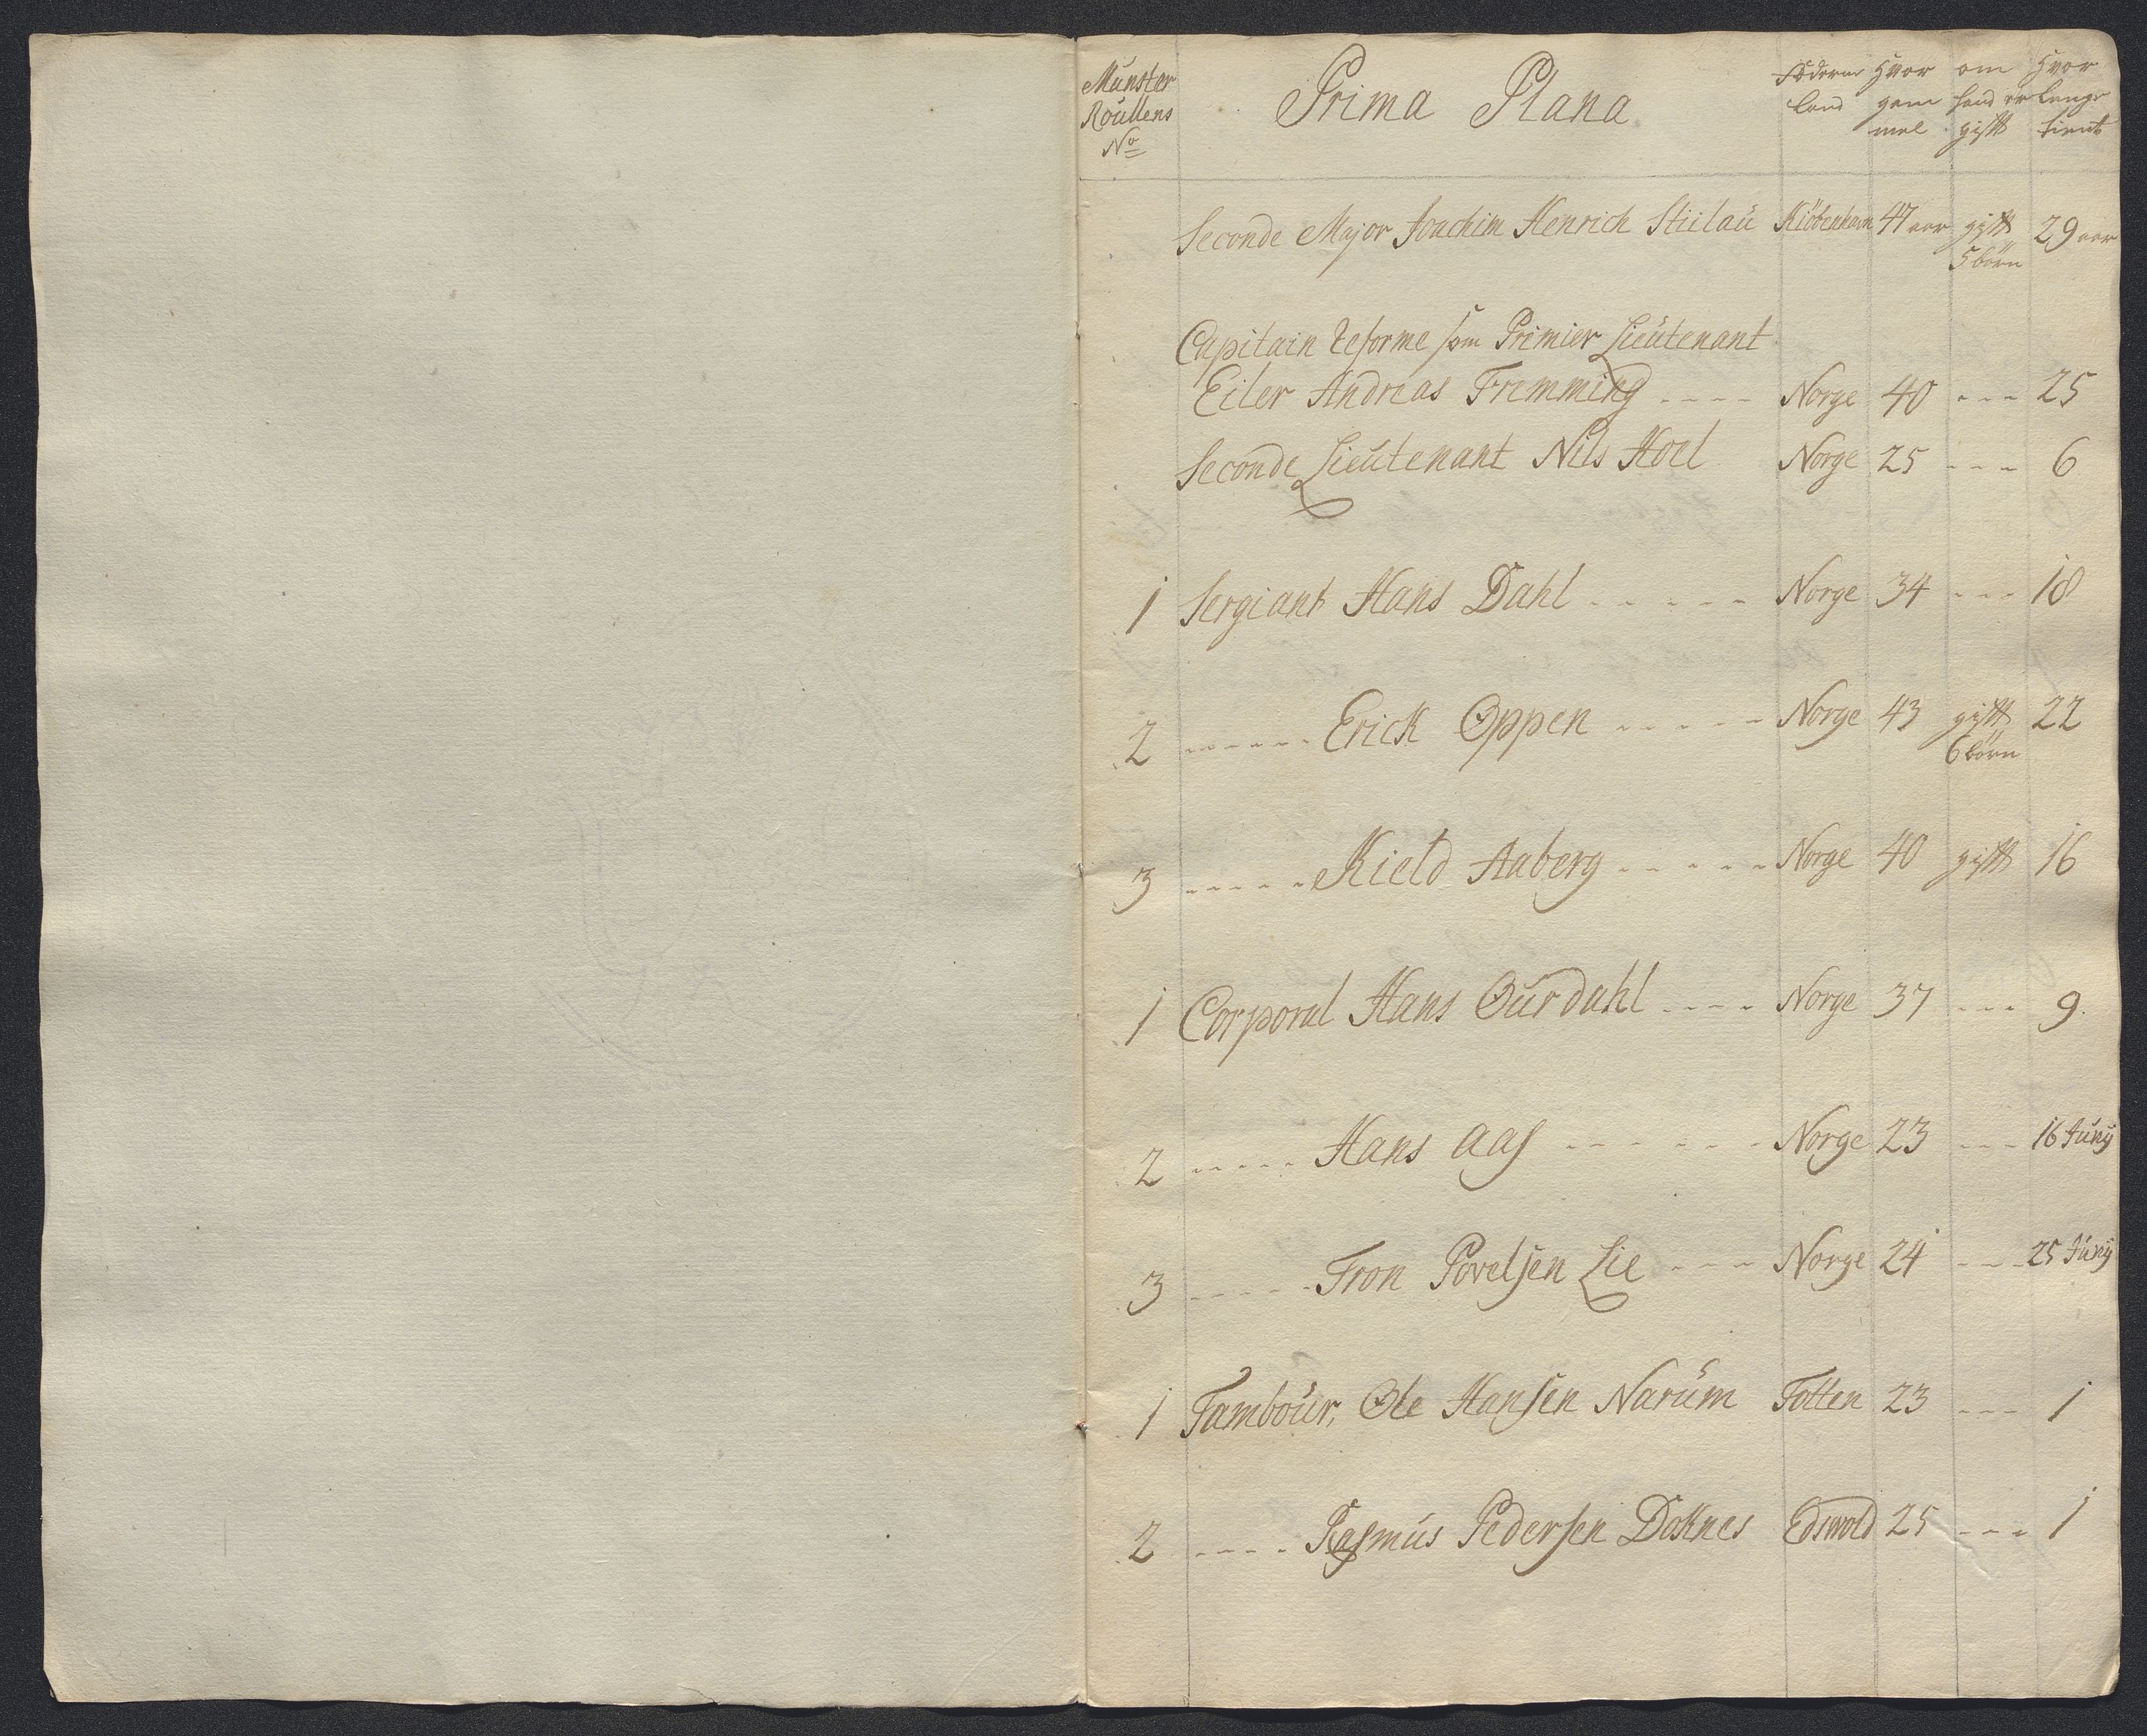 Munster Roullens No
Prima Plana
Föderne land
Hvor gam mel
om hand er gifft
Hvor lenge tient
Seconde Major Joachim Henrich Stülau Kiöbenhavn 47 aar gifft 29 aar
5 börn
Capitain Reforme som Primier Lieutenant
Eiler Andreas Fremming ---- Norge 40 --- 25
Seconde Lieutenant Nils Hoel Norge 25 --- 6
1 Sergiant Hans Dahl ----- Norge 34 --- 18
2 ----- Erick Oppen ----- Norge 43 gifft 22
6 börn
3 ----- Kield Aaberg ----- Norge 40 gifft 16
1 Corporal Hans Ourdahl ---- Norge 37 --- 9.
2 ----- Hans Aas ------ Norge 23 --- 16 Junij
3 ----- Tron Povelsen Lie --- Norge 24 --- 25 Junij
1 Tambour, Ole Hansen Narum Totten 23 --- 1
2 ---- Rasmus Pedersen Doknes Edswold 25 --- 1